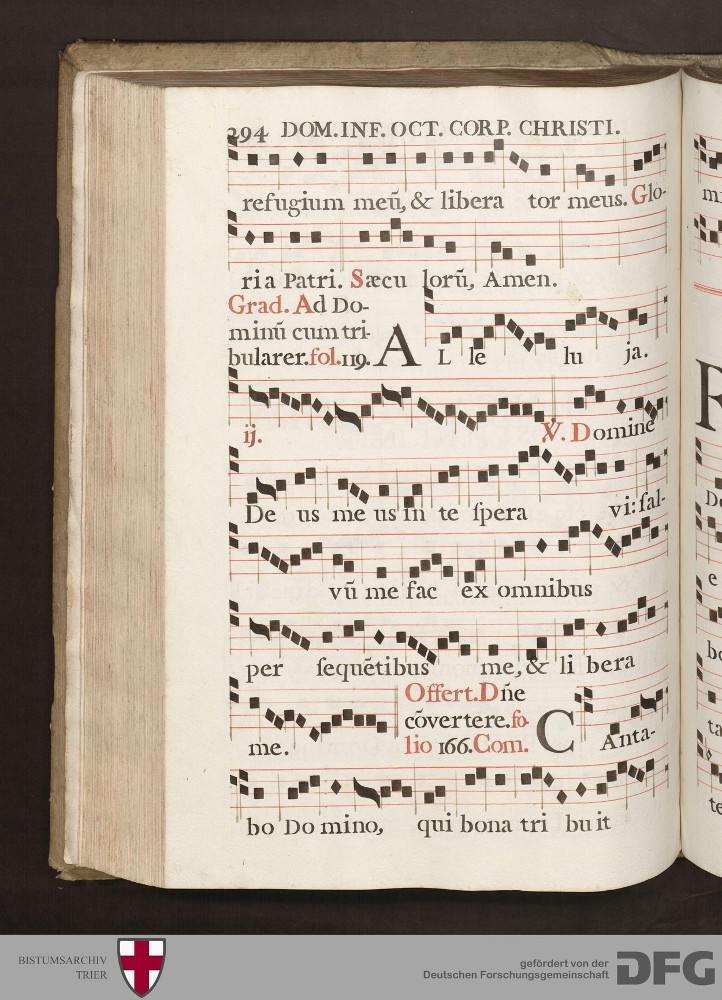 294 DOM. INF. OCT. CORP. CHRISTI.
refugium meū, & libera tor meus. Glo-
ria Patri. Sæcu lorū, Amen.
Grad. Ad Do-
minū cum tri-
bularer. fol. 119. A L le lu ja.
ij. V. Domine
De us me us in te spera vi: sal-
vū me fac ex omnibus
per sequētibus me, & li bera
me. Offert. Dñe
cōvertere. fo-
lio 166. Com. C Anta-
bo Do mino, qui bona tri bu it
mi
R
De
e
bo
ta
te
BISTUMSARCHIV
TRIER
gefördert von der
Deutschen Forschungsgemeinschaft
DFG